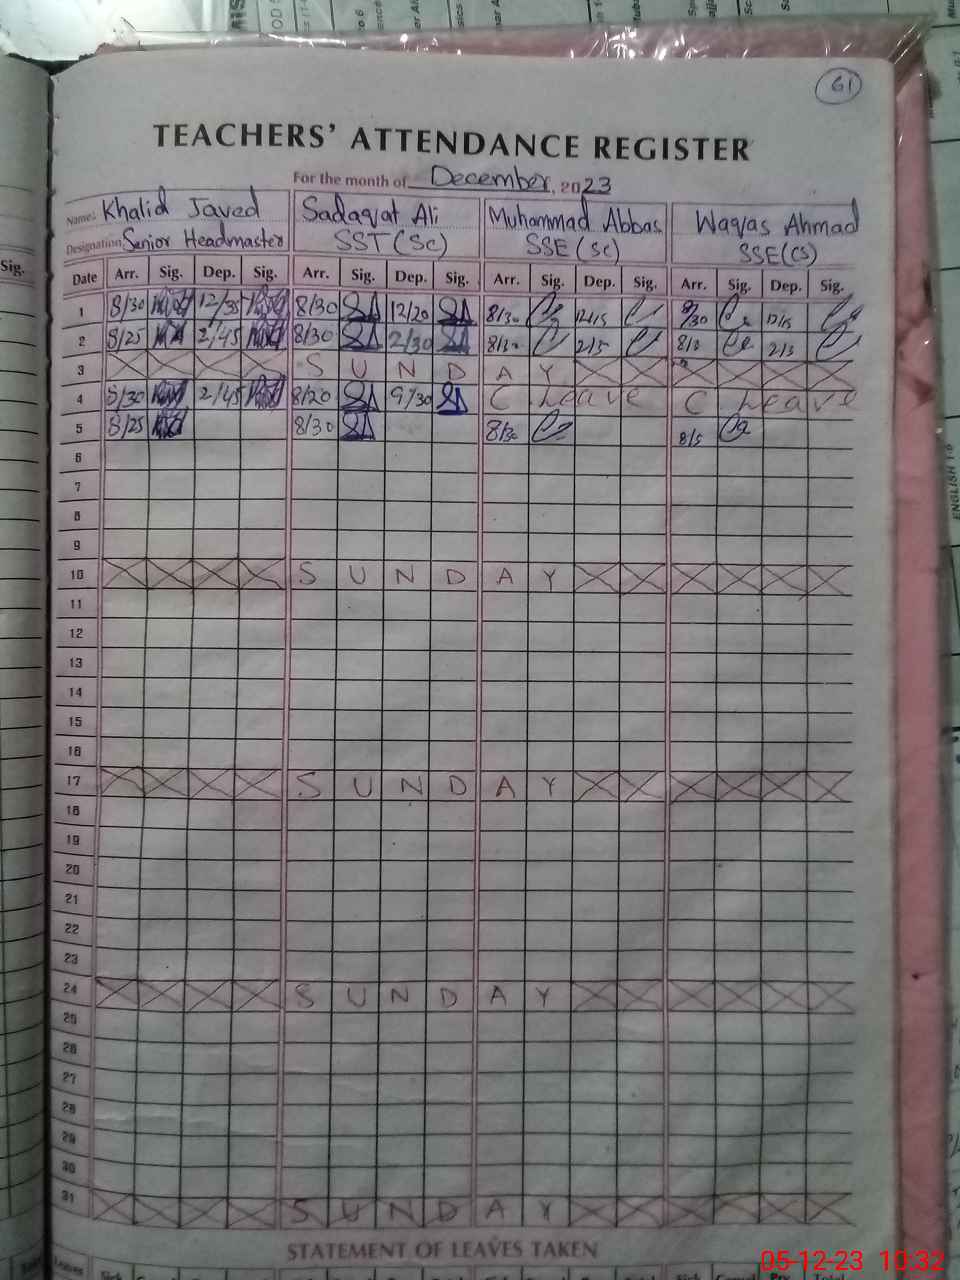 61
TEACHERS' ATTENDANCE REGISTER
For the month of December, 2023
Name: Khalid Javed Sadaqat Ali Muhammad Abbas Waqas Ahmad
Designation: Senior Headmaster SST (Sc) SSE (Sc) SSE (CS)
Sig.
Date Arr. Sig. Dep. Sig. Arr. Sig. Dep. Sig. Arr. Sig. Dep. Sig. Arr. Sig. Dep. Sig.
1 8/30 12/35 8/30 12/20 8/30 12/15 8/30 12/15
2 8/25 2/45 8/30 2/30 8/30 2/15
3 S U N D A Y
4 8/30 2/45 8/20 9/30 C Leave C Leave
5 8/25 8/30 8/30 8/5
6
7
8
9
10 S U N D A Y
11
12
13
14
15
16
17 S U N D A Y
18
19
20
21
22
23
24 S U N D A Y
25
26
27
28
29
30
31 S U N D A Y
STATEMENT OF LEAVES TAKEN
05-12-23 10:32